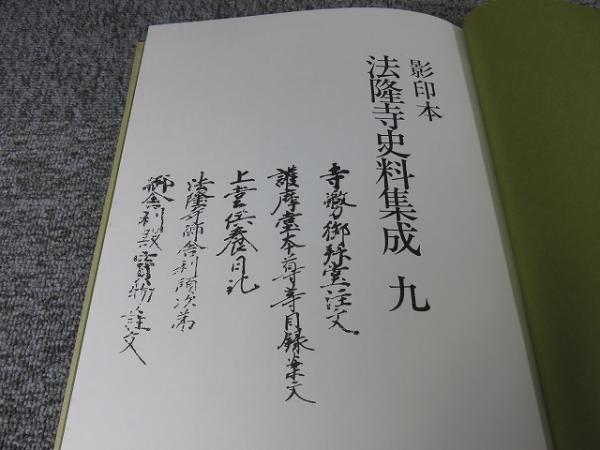 影印本
法隆寺史料集成 九
寺激御珎堂注文
護摩堂本尊等目録案文
上堂供養日記
法隆寺御舎利預次第
御舎利殿宝物注文